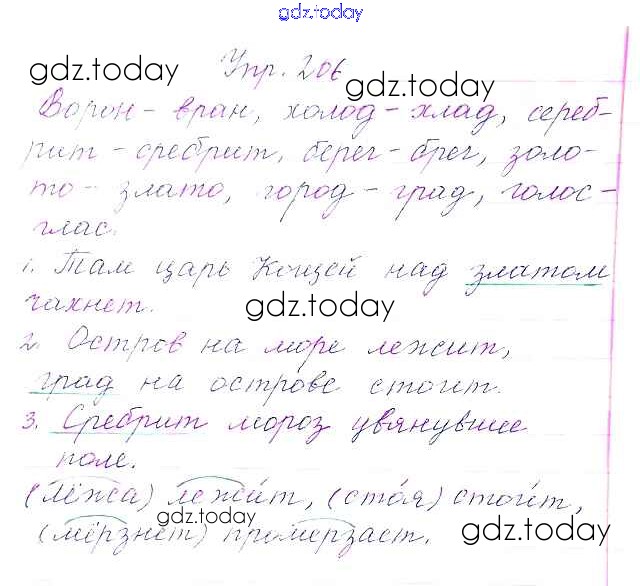 gdz.today
gdz.today Упр. 206 gdz.today
Ворон - вран, холод - хлад, сереб-
рит - сребрит, берег - брег, золо-
то - злато, город - град, голос -
глас.
1. Там царь Кощей над златом
чахнет. gdz.today
2. Остров на море лежит,
град на острове стоит.
3. Сребрит мороз увянувшее
поле.
(Лёжа) лежит, (стоя) стоит,
(мёрзнет) промерзает.
gdz.today gdz.today